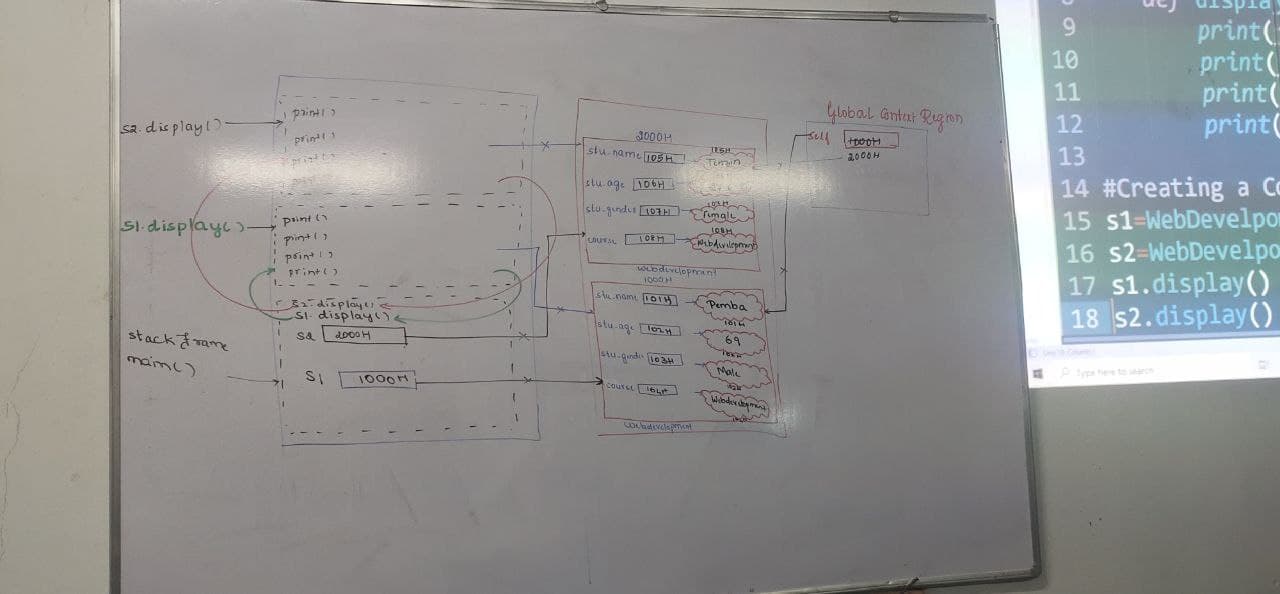 s2.display()
print()
print()
print()
s1.display()
print()
print()
print()
print()
s2.display()
s1.display()
s2 2000H
stack frame
main()
s1 1000H
2000H
stu_name 105H
105H
Tenzin
stu_age 106H
stu_gender 107H
107H
Female
course 108H
108H
Webdevelopment
Webdevelopment
1000H
stu_name 101H
Pemba
101H
stu_age 102H
69
102H
stu_gender 103H
Male
103H
course 104H
Webdevelopment
104H
Webdevelopment
Global Context Region
self 1000H
2000H
8 def displa
9 print(
10 print(
11 print(
12 print(
13
14 #Creating a Co
15 s1=WebDevelpo
16 s2=WebDevelpo
17 s1.display()
18 s2.display()
Type here to search